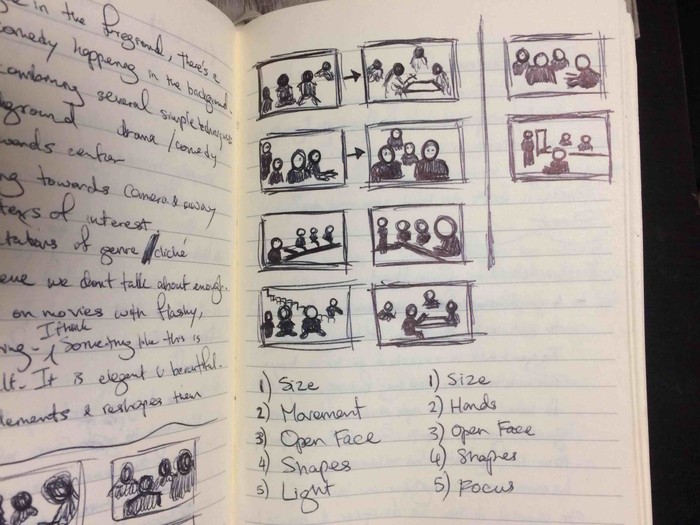 in the foreground, there's a
comedy happening in the background.
combining several simple techniques
drama / comedy
towards center
towards camera & away
of interest
of genre / cliché
we don't talk about enough.
on movies with flashy,
I think
something like this is
It is elegant & beautiful.
elements & reshapes them
1) Size
2) Movement
3) Open Face
4) Shapes
5) Light
1) Size
2) Hands
3) Open Face
4) Shapes
5) Focus